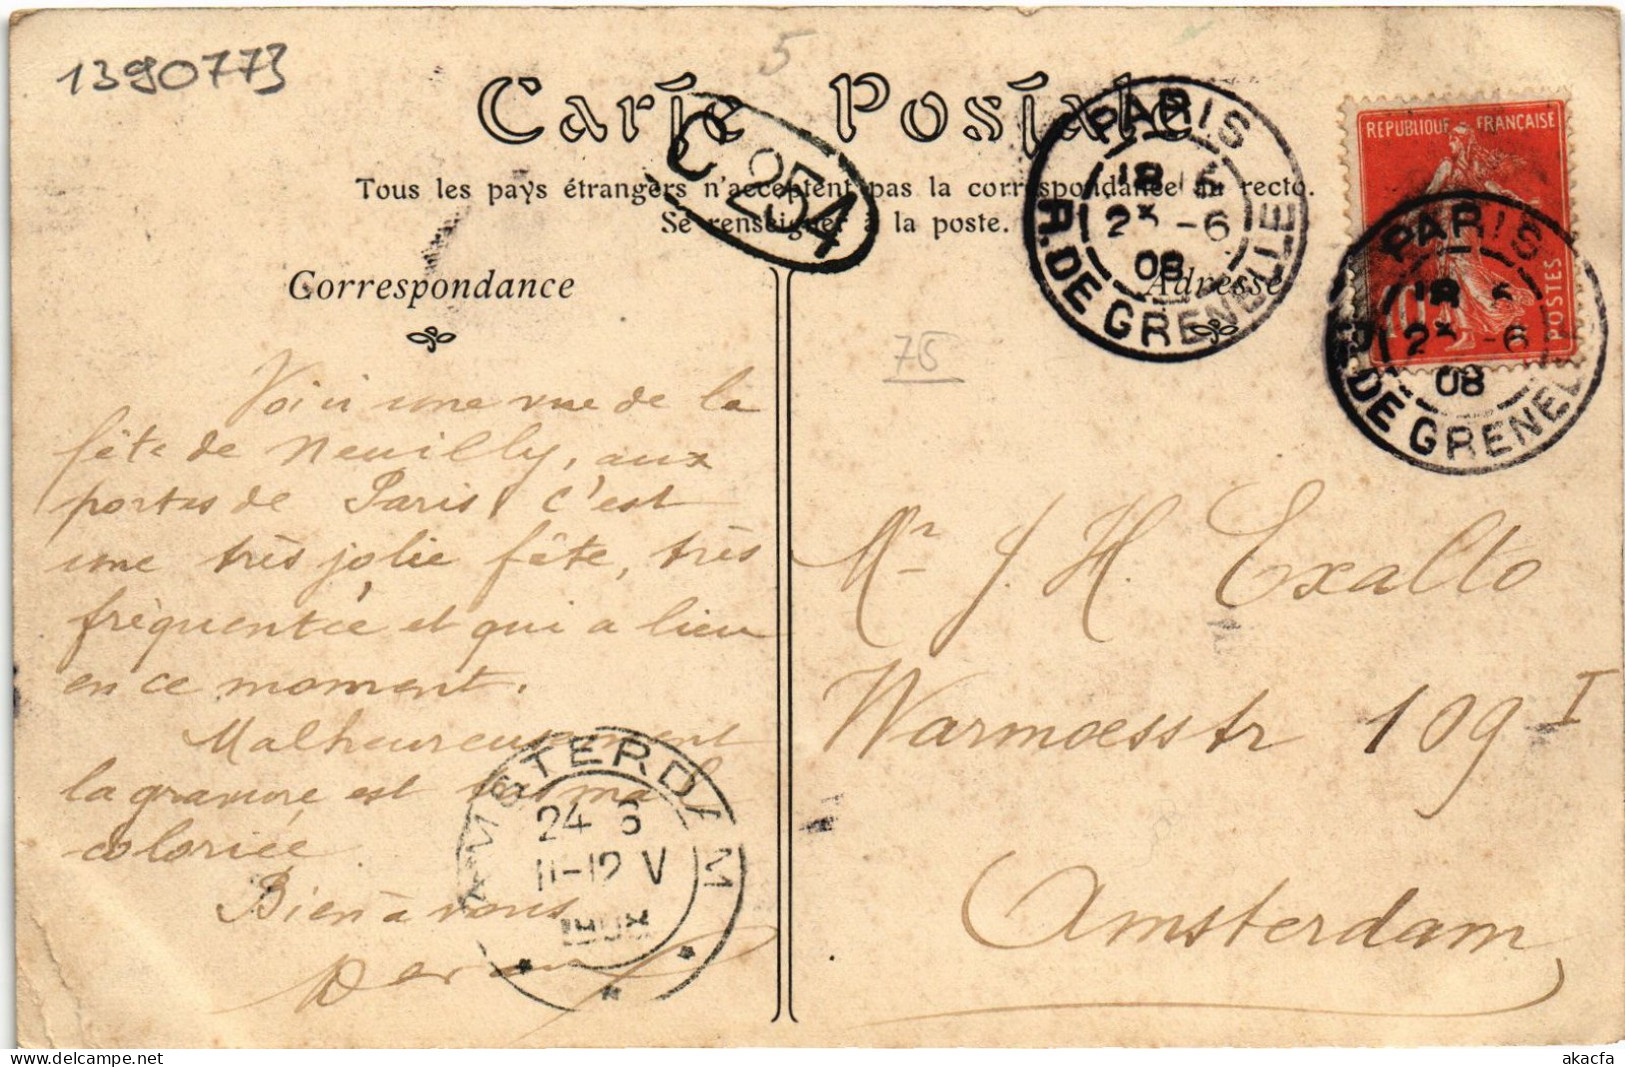 1390773
5
Carte Postale
Tous les pays étrangers n'acceptent pas la correspondance au recto.
Se renseigner à la poste.
C 254
PARIS
18 15
23 -6
08
R. DE GRENELLE
REPUBLIQUE FRANÇAISE
10
POSTES
PARIS
18
23 -6
08
R. DE GRENELLE
Correspondance
Adresse
75
Voici une vue de la
fête de Neuilly, aux
portes de Paris c'est
une très jolie fête, très
fréquentée et qui a lieu
en ce moment.
Malheureusement
la gravure est mal
coloriée.
Bien à vous
AMSTERDAM
24 6
11-12 V
1908
Mr J. H. Exalto
Warmoesstr 109 I
Amsterdam
akacfa